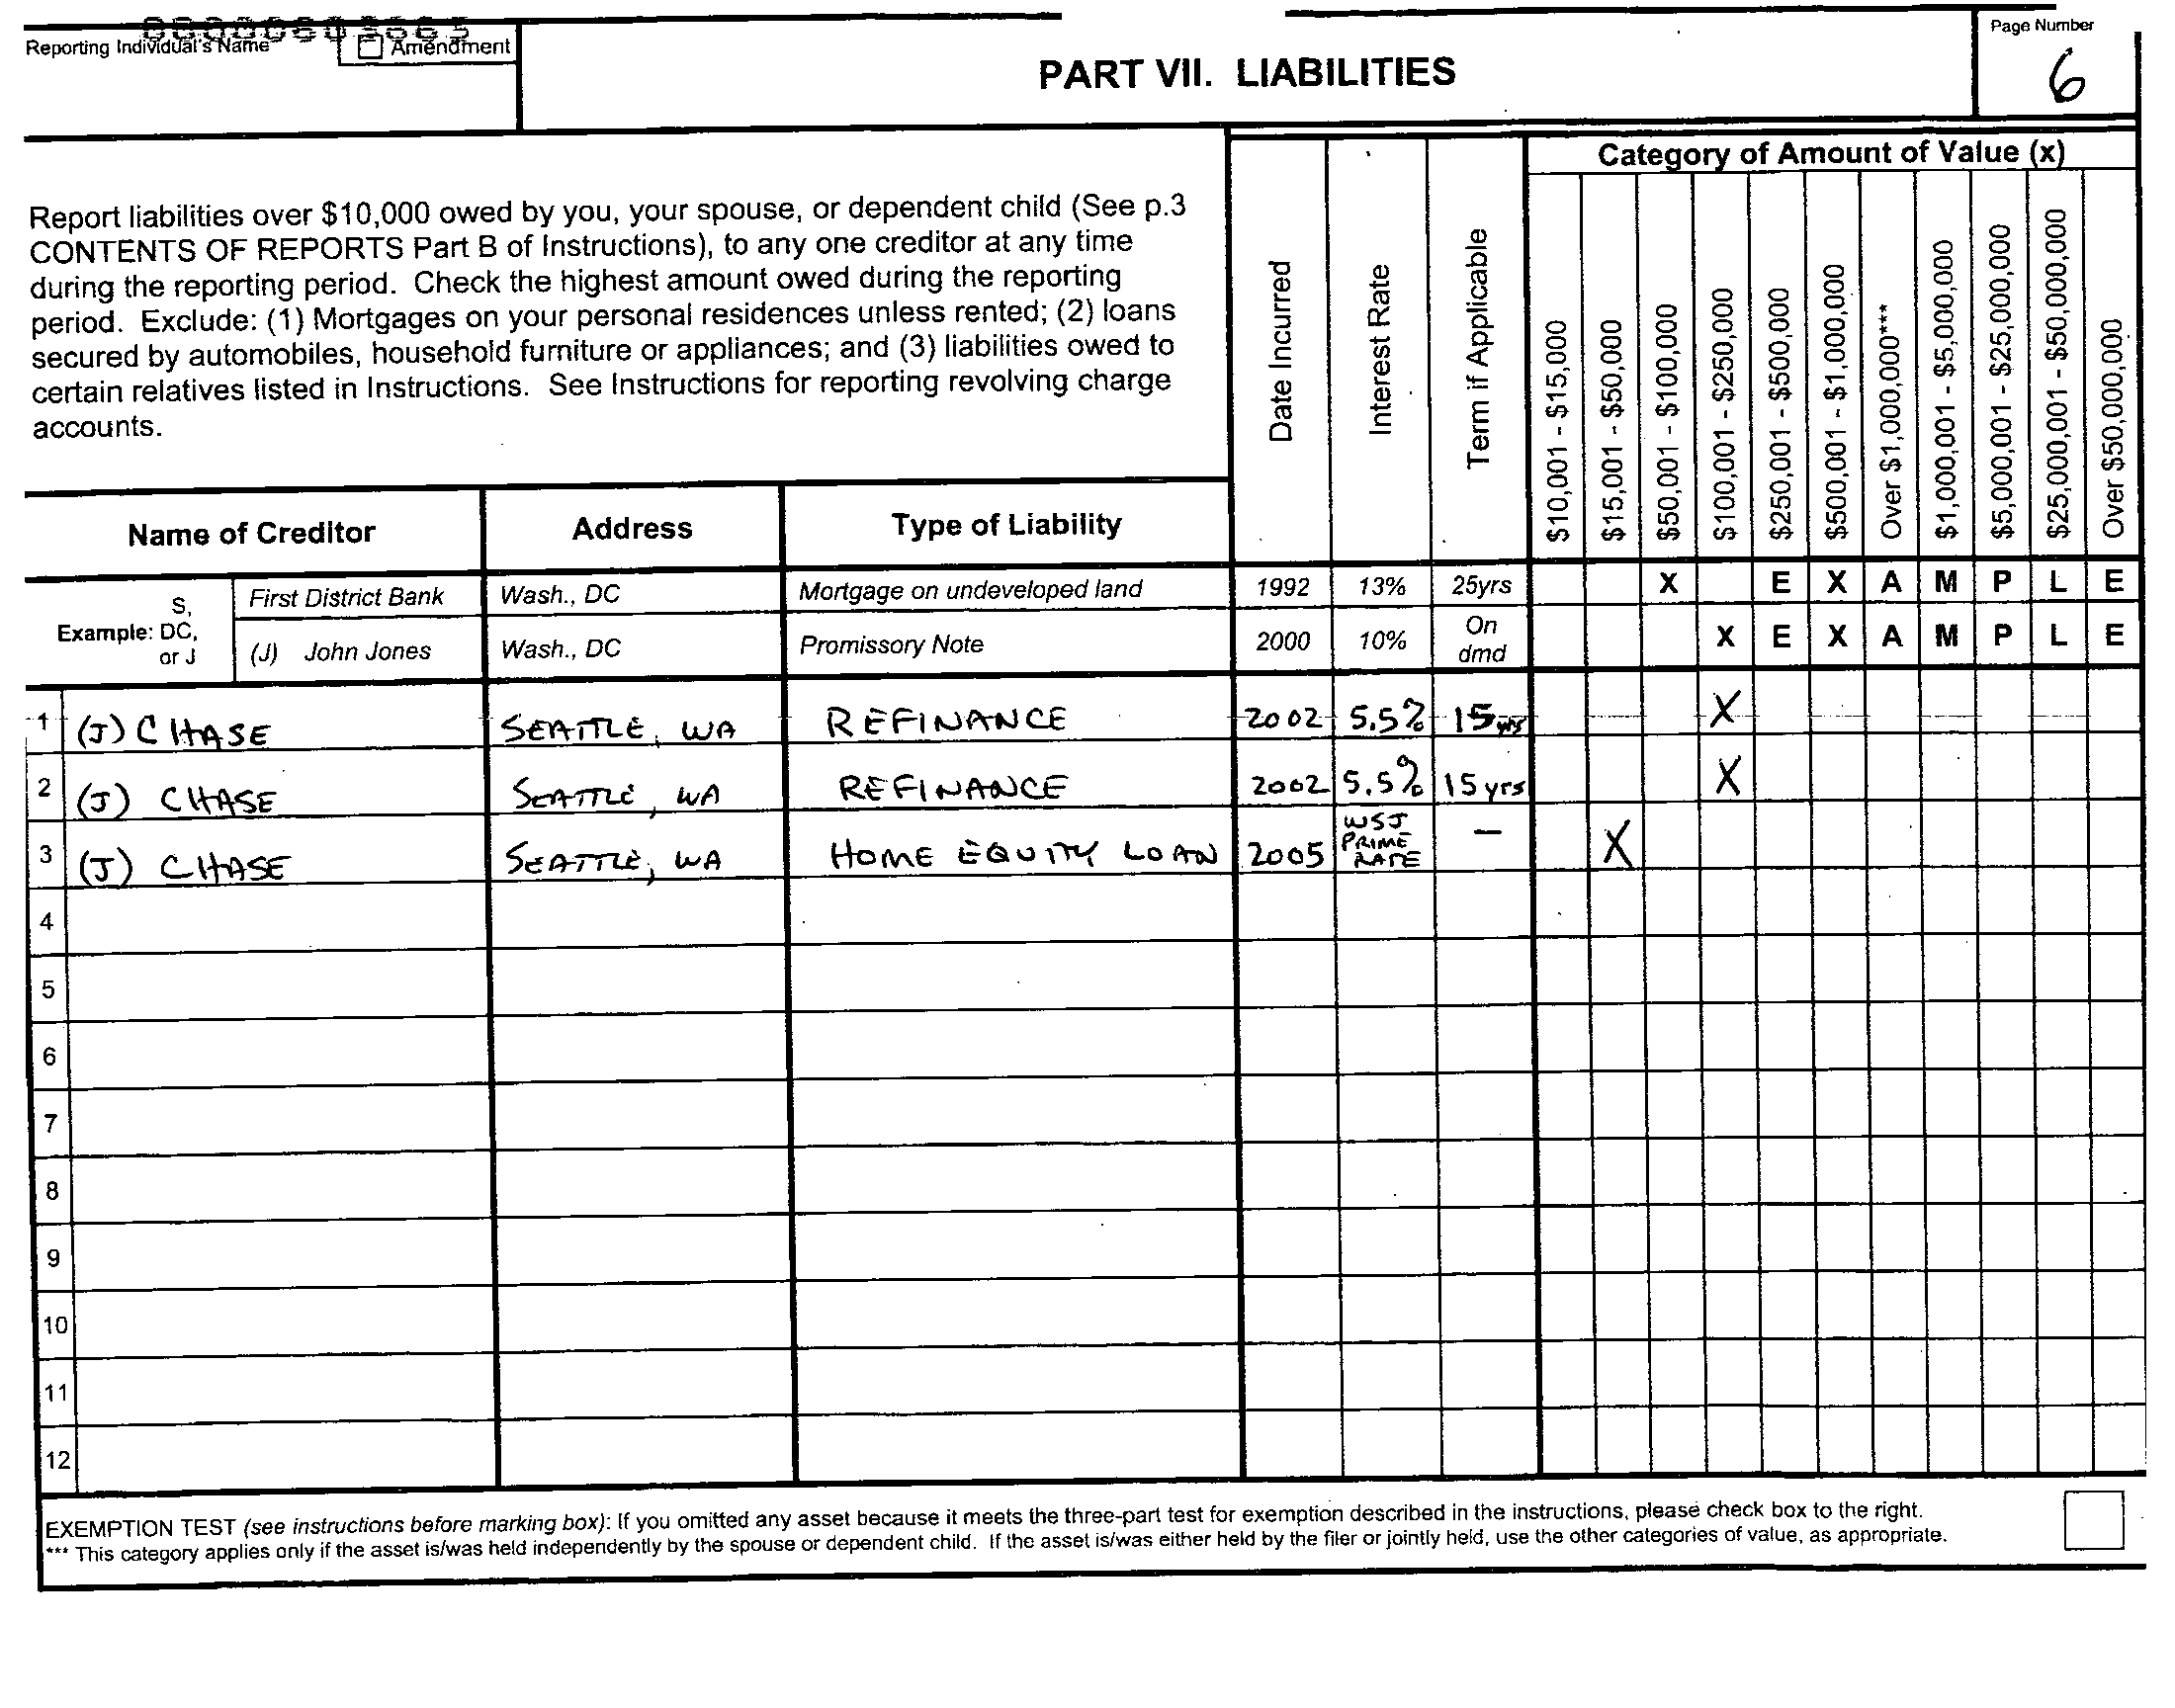 Reporting Individual's Name
Amendment
PART VII. LIABILITIES
Page Number
6
Report liabilities over $10,000 owed by you, your spouse, or dependent child (See p.3
CONTENTS OF REPORTS Part B of Instructions), to any one creditor at any time
during the reporting period. Check the highest amount owed during the reporting
period. Exclude: (1) Mortgages on your personal residences unless rented; (2) loans
secured by automobiles, household furniture or appliances; and (3) liabilities owed to
certain relatives listed in Instructions. See Instructions for reporting revolving charge
accounts.
Date Incurred
Interest Rate
Term if Applicable
Category of Amount of Value (x)
$10,001 - $15,000
$15,001 - $50,000
$50,001 - $100,000
$100,001 - $250,000
$250,001 - $500,000
$500,001 - $1,000,000
Over $1,000,000***
$1,000,001 - $5,000,000
$5,000,001 - $25,000,000
$25,000,001 - $50,000,000
Over $50,000,000
Name of Creditor Address Type of Liability
Example: S, DC, or J
First District Bank Wash., DC Mortgage on undeveloped land 1992 13% 25yrs X E X A M P L E
(J) John Jones Wash., DC Promissory Note 2000 10% On dmd X E X A M P L E
1 (J) CHASE SEATTLE, WA REFINANCE 2002 5.5% 15 yrs X
2 (J) CHASE SEATTLE, WA REFINANCE 2002 5.5% 15 yrs X
3 (J) CHASE SEATTLE, WA HOME EQUITY LOAN 2005 WSJ PRIME RATE — X
4
5
6
7
8
9
10
11
12
EXEMPTION TEST (see instructions before marking box): If you omitted any asset because it meets the three-part test for exemption described in the instructions, please check box to the right.
*** This category applies only if the asset is/was held independently by the spouse or dependent child. If the asset is/was either held by the filer or jointly held, use the other categories of value, as appropriate.